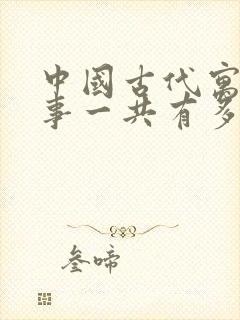 中國古代寓
事一共有多
叁啼